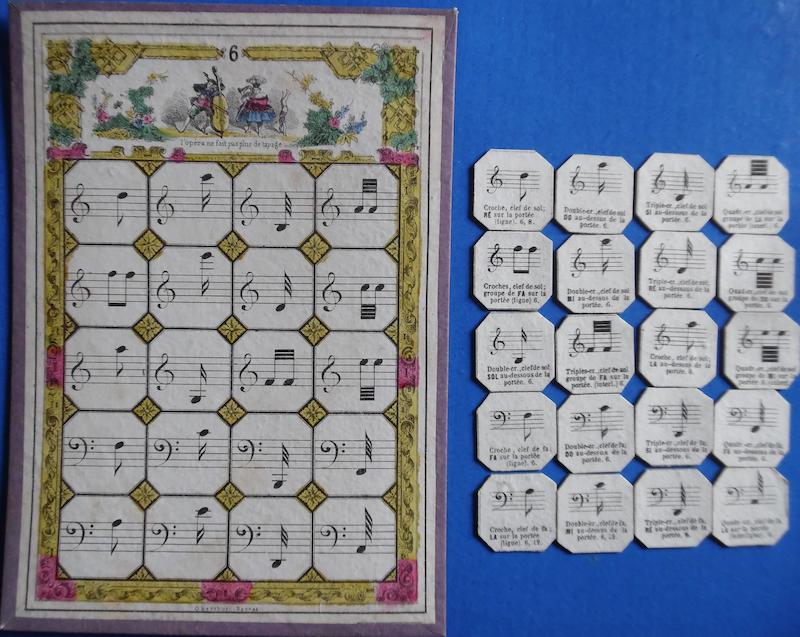 6
l'opéra ne fait pas plus de tapage
Croche, clef de sol;
RÉ sur la portée
(ligne). 6, 8.
Double-cr., clef de sol
DO au-dessus de la
portée. 6.
Triple-cr., clef de sol
SI au-dessous de la
portée. 6.
Quadr-cr., clef de sol
groupe de LA sur la
portée (interl.) 6.
Croches, clef de sol;
groupe de FA sur la
portée (ligne) 6.
Double-cr., clef de sol
MI au-dessus de la
portée. 6.
Triple-cr., clef de sol
RÉ au-dessous de la
portée. 6.
Quad-cr., clef de sol
groupe de
portée (ligne) 6.
Double-cr., clef de sol
SOL au-dessous de la
portée. 6.
Triples-cr., clef de sol
groupe de FA sur la
portée. (interl.) 6.
Croche, clef de sol;
LA au-dessus de la
portée. 6.
Quad-cr., clef de sol
groupe de
portée
Croche, clef de fa;
FA sur la portée
(ligne). 6.
Double-cr., clef de fa;
DO au-dessus de la
portée. 6.
Triple-cr., clef de fa;
SI au-dessous de la
portée. 6.
Quadr-cr., clef de fa
FA au-dessous de la
portée. 6.
Croche, clef de fa;
LA sur la portée
(ligne). 6, 12.
Double-cr., clef de fa,
MI au-dessus de la
portée. 6, 12.
Triple-cr., clef de fa;
RÉ au-dessous de la
portée. 6.
Quadr-cr., clef de fa,
LA sur la portée